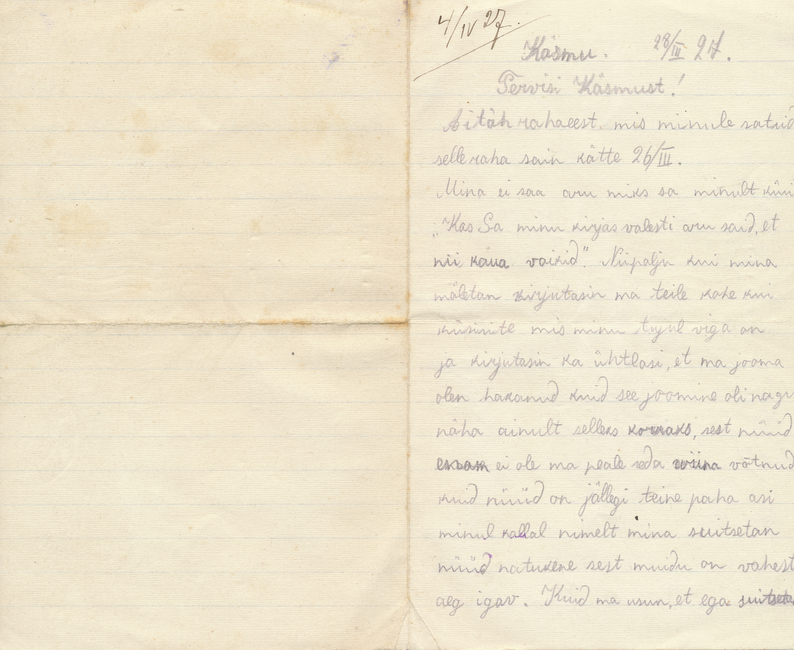 4/IV 27.
Käsmu. 28/III 27.
Tervisi Käsmust!
Aitäh rahaeest. mis minule saatsid
selle raha sain kätte 26/III.
Mina ei saa aru miks sa minult küsi
„Kas Sa minu kirjas valesti aru said, et
nii kaua vaikid". Niipalju kui mina
mäletan kirjutasin ma teile kohe kui
küsisite mis minu tujul viga on
ja kirjutasin ka ühtlasi, et ma jooma
olen hakanud kuid see joomine oli nagu
näha ainult selleks korraks, sest nüüd
enam ei ole ma peale seda viina võtnud
kuid nüüd on jällegi teine paha asi
minul kallal nimelt mina suitsetan
nüüd natukene sest muidu on vahest
aeg igav. Kuid ma usun, et ega